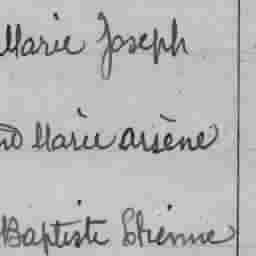 Marie Joseph
Marie arsène
Baptiste Etienne